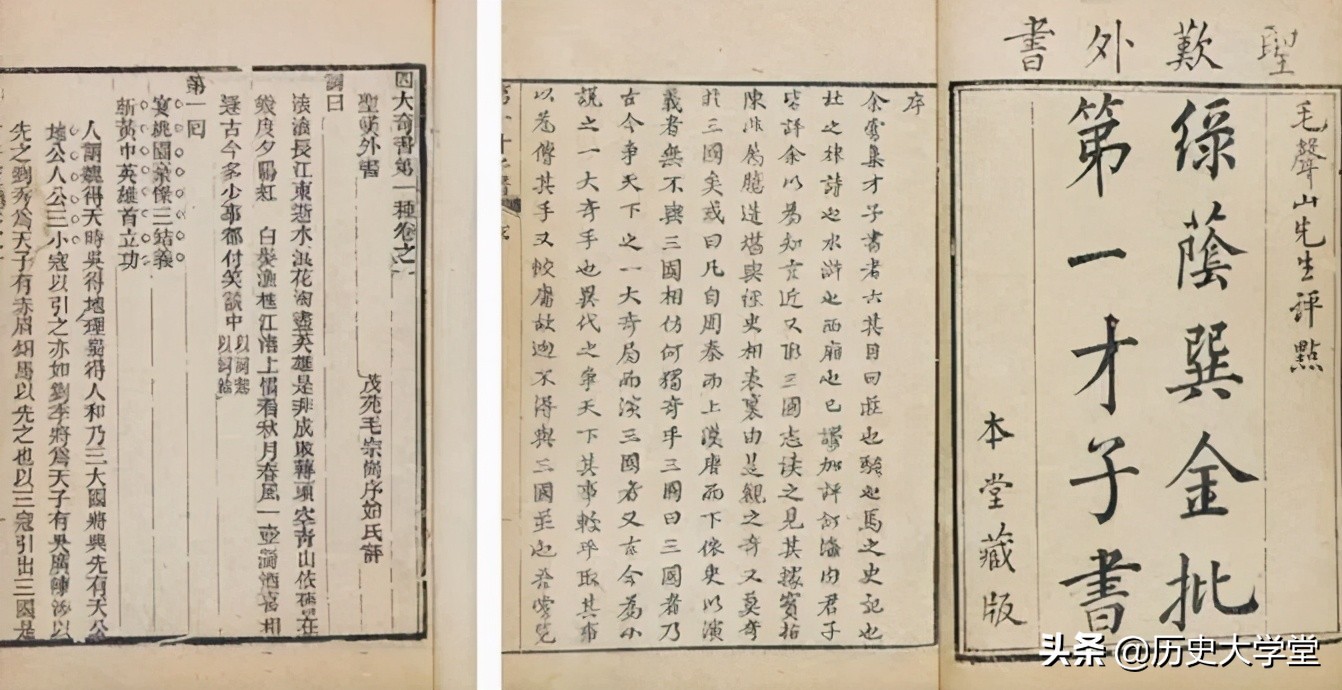 聖歎外書
毛聲山先生評點
綠蔭巽金批
第一才子書
本堂藏版
序
余嘗集才子書者六其目曰莊也騷也馬之史記也
杜之律詩也水滸也西廂也已謬加評訂海內君子
皆許余以爲知言近又取三國志读之見其據實指
陳非屬臆造堪與經史相表裏由是觀之奇又莫奇
於三國矣或曰凡自周秦而上漢唐而下依史以演
義者無不與三國相仿何獨奇乎三國曰三國者乃
古今爭天下之一大奇局而演三國者又古今為小
說之一大奇手也異代之爭天下其事較平取其事
以為傳其手又較庸故迥不得與三國並也余嘗覽
四大奇書第一種卷之一
聖嘆外書
茂苑毛宗崗序始氏評
詞曰
滾滾長江東逝水浪花淘盡英雄是非成敗轉頭空青山依舊在
幾度夕陽紅 白髮漁樵江渚上慣看秋月春風一壺濁酒喜相
逢古今多少事都付笑談中 以詞起 以詞結
第一回
宴桃園豪傑三結義
斬黃巾英雄首立功
人謂魏得天時吳得地理蜀得人和乃三大國將興先有天公
地公人公三小寇以引之亦如劉季將爲天子有吳廣陳涉以
先之劉秀爲天子有赤眉銅馬以先之也以三寇引出三國是
头条 @历史大学堂